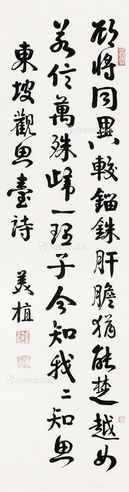 欲將同異較錙銖肝膽猶能楚越如
若信萬殊歸一理子今知我〻知魚
東坡觀魚臺詩 美植